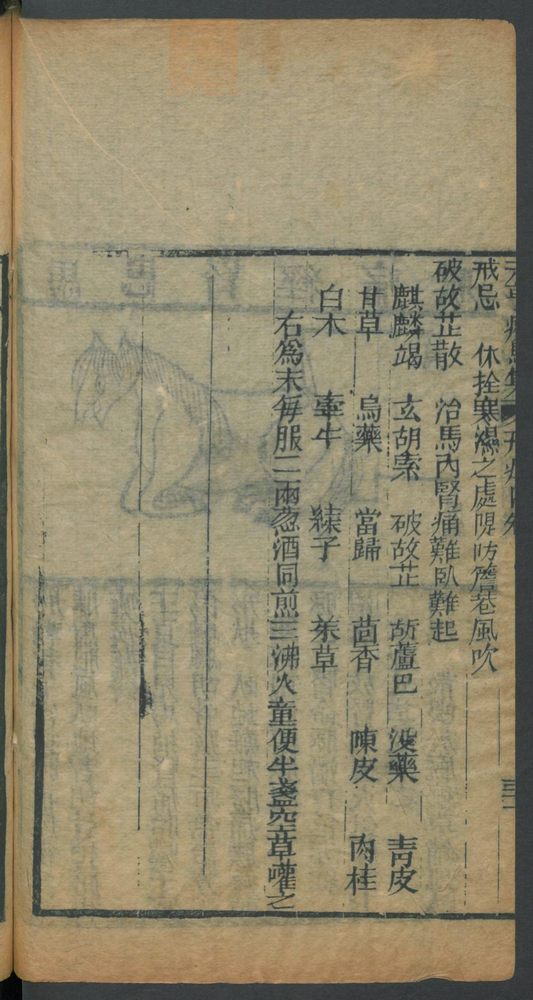 戒忌　休拴寒濕之處隄防簷巷風吹
破故芷散　治馬內腎痛難臥難起
麒麟竭　玄胡索　破故芷　葫蘆巴　沒藥　靑皮
甘草　烏藥　當歸　茴香　陳皮　肉桂
白木　牽牛　練子　茱草
右爲末每服二兩葱酒同煎三沸入童便半盞空草嚾之